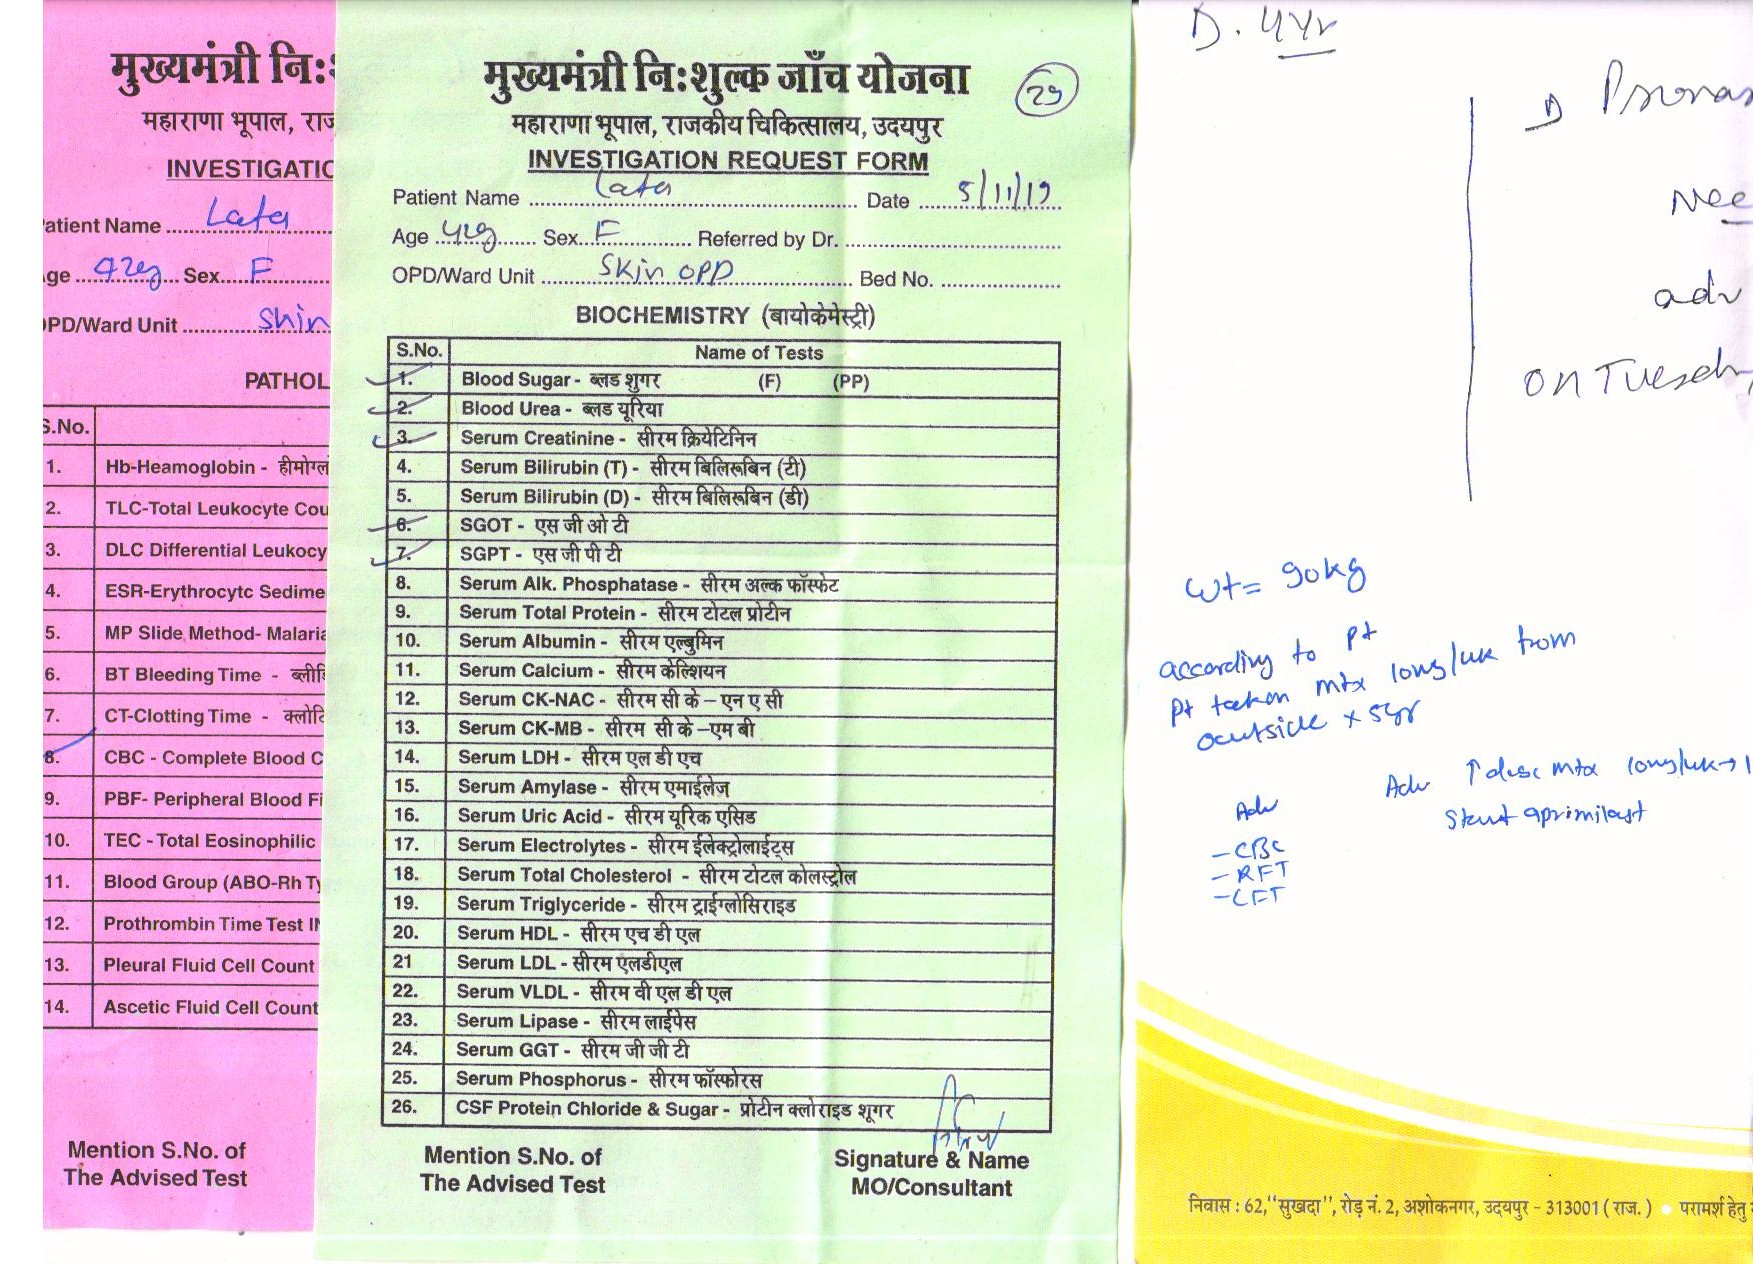 मुख्यमंत्री नि:
महाराणा भूपाल, राज
INVESTIGATIO
Patient Name Lata
Age 42y Sex F
OPD/Ward Unit Skin
PATHOL
S.No.
1. Hb-Heamoglobin - हीमोग्ल
2. TLC-Total Leukocyte Cou
3. DLC Differential Leukocy
4. ESR-Erythrocytc Sedime
5. MP Slide Method- Malaria
6. BT Bleeding Time - ब्लीडि
7. CT-Clotting Time - क्लोटि
8. CBC - Complete Blood C
9. PBF- Peripheral Blood Fi
10. TEC - Total Eosinophilic
11. Blood Group (ABO-Rh Ty
12. Prothrombin Time Test IN
13. Pleural Fluid Cell Count
14. Ascetic Fluid Cell Count
Mention S.No. of
The Advised Test
मुख्यमंत्री नि:शुल्क जाँच योजना
29
महाराणा भूपाल, राजकीय चिकित्सालय, उदयपुर
INVESTIGATION REQUEST FORM
Patient Name Lata Date 5/11/19
Age Sex F Referred by Dr.
OPD/Ward Unit Skin OPD Bed No.
BIOCHEMISTRY (बायोकेमेस्ट्री)
S.No. Name of Tests
1. Blood Sugar - ब्लड शुगर (F) (PP)
2. Blood Urea - ब्लड यूरिया
3. Serum Creatinine - सीरम क्रियेटिनिन
4. Serum Bilirubin (T) - सीरम बिलिरूबिन (टी)
5. Serum Bilirubin (D) - सीरम बिलिरूबिन (डी)
6. SGOT - एस जी ओ टी
7. SGPT - एस जी पी टी
8. Serum Alk. Phosphatase - सीरम अल्क फॉस्फेट
9. Serum Total Protein - सीरम टोटल प्रोटीन
10. Serum Albumin - सीरम एल्बुमिन
11. Serum Calcium - सीरम केल्शियन
12. Serum CK-NAC - सीरम सी के – एन ए सी
13. Serum CK-MB - सीरम सी के –एम बी
14. Serum LDH - सीरम एल डी एच
15. Serum Amylase - सीरम एमाईलेज़
16. Serum Uric Acid - सीरम यूरिक एसिड
17. Serum Electrolytes - सीरम ईलेक्ट्रोलाईट्स
18. Serum Total Cholesterol - सीरम टोटल कोलस्ट्रोल
19. Serum Triglyceride - सीरम ट्राईग्लोसिराइड
20. Serum HDL - सीरम एच डी एल
21 Serum LDL - सीरम एलडीएल
22. Serum VLDL - सीरम वी एल डी एल
23. Serum Lipase - सीरम लाईपेस
24. Serum GGT - सीरम जी जी टी
25. Serum Phosphorus - सीरम फॉस्फोरस
26. CSF Protein Chloride & Sugar - प्रोटीन क्लोराइड शूगर
Mention S.No. of
The Advised Test
Signature & Name
MO/Consultant
D. 4yr
Psorias
Nee
adv
on Tuesda
wt= 90kg
according to pt
pt taken mtx 10mg/wk from
outside x 5yr
Adv ↑dose mtx 10mg/wk→1
Start apremilast
Adv
-CBC
-RFT
-LFT
निवास : 62,"सुखदा", रोड़ नं. 2, अशोकनगर, उदयपुर - 313001 ( राज. ) • परामर्श हेतु